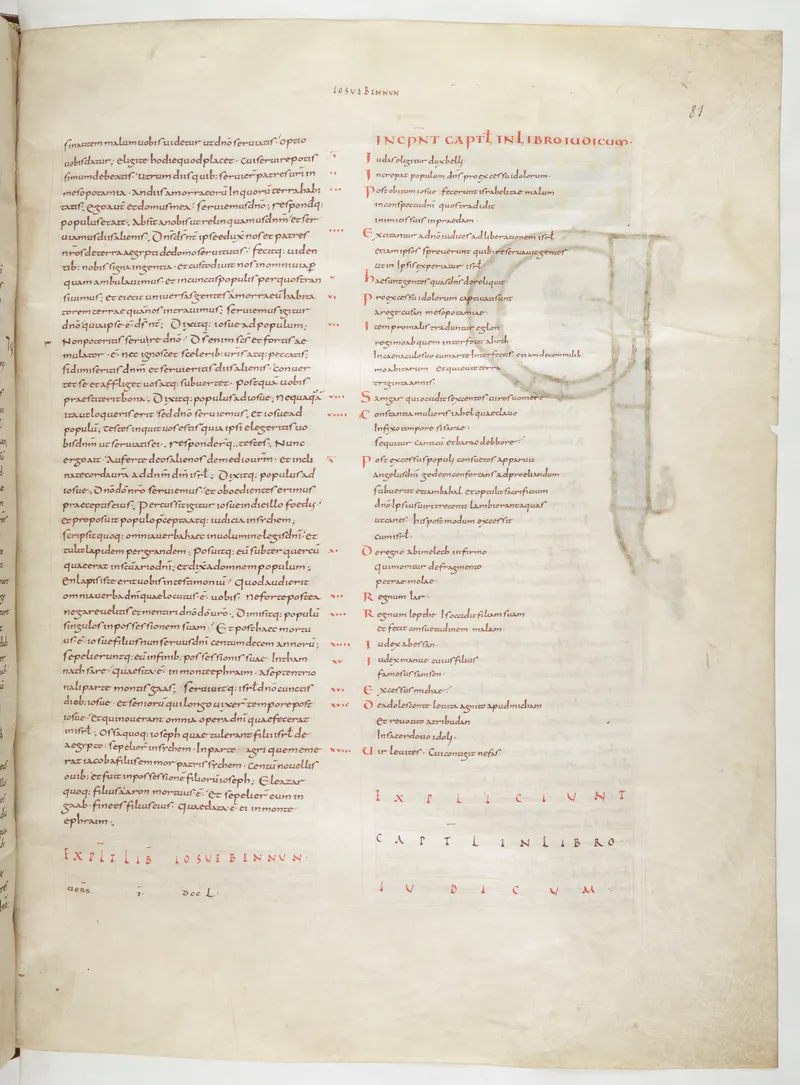 IOSUE BENNUN
81
sin autem malum uobis uidetur ut dño seruiatis · optio
uobis datur; eligite hodie quod placet · cui seruire potis
simum debeatis · utrum diis quib: seruier patres uri in
mesopotamia · An diis amorraeorũ In quorũ terra habi
tatis; ego aut et domus mea seruiemus dño; respondq:
populus et ait; Absit a nobis ut relinquamus dñm et ser
uiamus diis alienis; Dñs ds nr ipse eduxit nos et patres
nros de terra aegypti de domo seruitutis · fecitq: uiden
tib: nobis signa ingentia · et custodiuit nos in omni uia p
quam ambulauimus · et in cunctis populis per quos tran
siuimus; et eiecit uniuersas gentes amorraeũ habita
torem terrae quã nos intrauimus; seruiemus igitur
dño quia ipse ē ds nr; Dixitq: iosue ad populum;
Non poteritis seruire dño · Ds enim scs et fortis ae
mulator · ē nec ignoscet sceleribus uris atq: peccatis;
si dimiseritis dñm et seruieritis diis alienis · conuer
tet se et affliget uos atq: subuertet · postquã uobis
praestiterit bona; Dixitq: populus ad iosue; nequaquã
ita ut loqueris erit sed dño seruiemus; et iosue ad
populũ; testes inquit uos estis quia ipsi elegeritis uo
bis dñm ut seruiatis ei · responderq: testes; Nunc
ergo ait · Auferte deos alienos de medio urm · et incli
nate corda ura ad dñm dm isrl; Dixitq: populus ad
iosue; Dño do nro seruiemus · et oboedientes erimus
praeceptis eius; Percussit igitur iosue in die illo foedus
et proposuit populo pcepta atq: iudicia in sychem;
scripsit quoq: omnia uerba haec in uolumine legis dñi · et
tulit lapidem pergrandem; posuitq: eũ subter quercũ
quae erat in scuario dñi; et dixit ad omnem populum;
En lapis iste erit uobis in testimoniũ · quod audierit
omnia uerba dñi quae locutus ē uobis · ne forte postea
negare uelitis et mentiri dño do uro; Dimisitq: populũ
singulos in possessionem suam; Et post haec mortu
us ē iosue filius nun seruus dñi centum decem annorũ;
sepelieruntq: eũ in finib: possessionis suae · In tham
nath sare · quae sita ē in monte ephraim · A septentrio
nali parte montis gaas; seruiuitq: isrl dño cunctis
dieb: iosue · et seniorũ qui longo uixer tempore post
iosue · et qui nouerant omnia opera dñi quae fecerat
in isrl; Ossa quoq: ioseph quae tulerant filii isrl de
aegypto · sepelier in sychem · In parte agri quem eme
rat iacob a filiis emmor patris sychem · centũ nouellis
ouib: et fuit in possessionē filiorũ ioseph; Eleazar
quoq: filius aaron mortuus ē · Et sepelier eum in
gaab finees filii eius · quae data ē ei in monte
ephraim;
EXPLIT LIB IOSUE BENNUN·
uers ī DCCL·
INCPNT CAPTL IN LIBRO IUDICUM·
Iudas eligitur dux belli·
Increpat populum dns pro excessu idolorum·
Post obitum iosue fecerunt israhelitae malum
in conspectu dni quos tradidit
inimicis suis in praedam·
Excitantur a dño iudices ad liberationem isrl
etiam ipsos spreuerunt quib: reseruauit gentes
ut in ipsis experiatur isrl·
Hae sunt gentes quas dns dereliquit·
Pro excessu idolorum captiuati sunt
a rege cusan mesopotamiae·
Item pro malis traduntur eglon
regi moab quem interfecit ahoth
In caenaculo suo cum arte Interfectis etiam decem milib·
moabitarum et quieuit terra
triginta annis·
Samgar qui occidit sexcentos uiros uomere·
Constantia mulieris iahel quae clauo
Infixo tempore sisarae·
sequitur canticũ et barac debbore·
Post excessus populi consuetos apparuit
angelus dni gedeon confortans ad proeliandum
subuertit etiam bahal et optulit sacrificium
dño Ipsius uiri trecenti lambierant aquas
ut canes· his postmodum excessit
cum isrl·
De regno abimelech infirmo
qui moritur de fragmento
petrae molae·
Regnum Iair·
Regnum Iepthe Is occidit filiam suam
et fecit consuetudinem malam·
Iudex abessan·
Iudex manue cuius filius
famosus samson·
Excessus michae·
De adolescente leuita agnito apud micham
et reuocato a tribu dan
In sacerdotio idoli·
Uir leuites· Cui contigit nefas
EXPLICIUNT
CAPTL IN LIBRO·
IUDICUM·